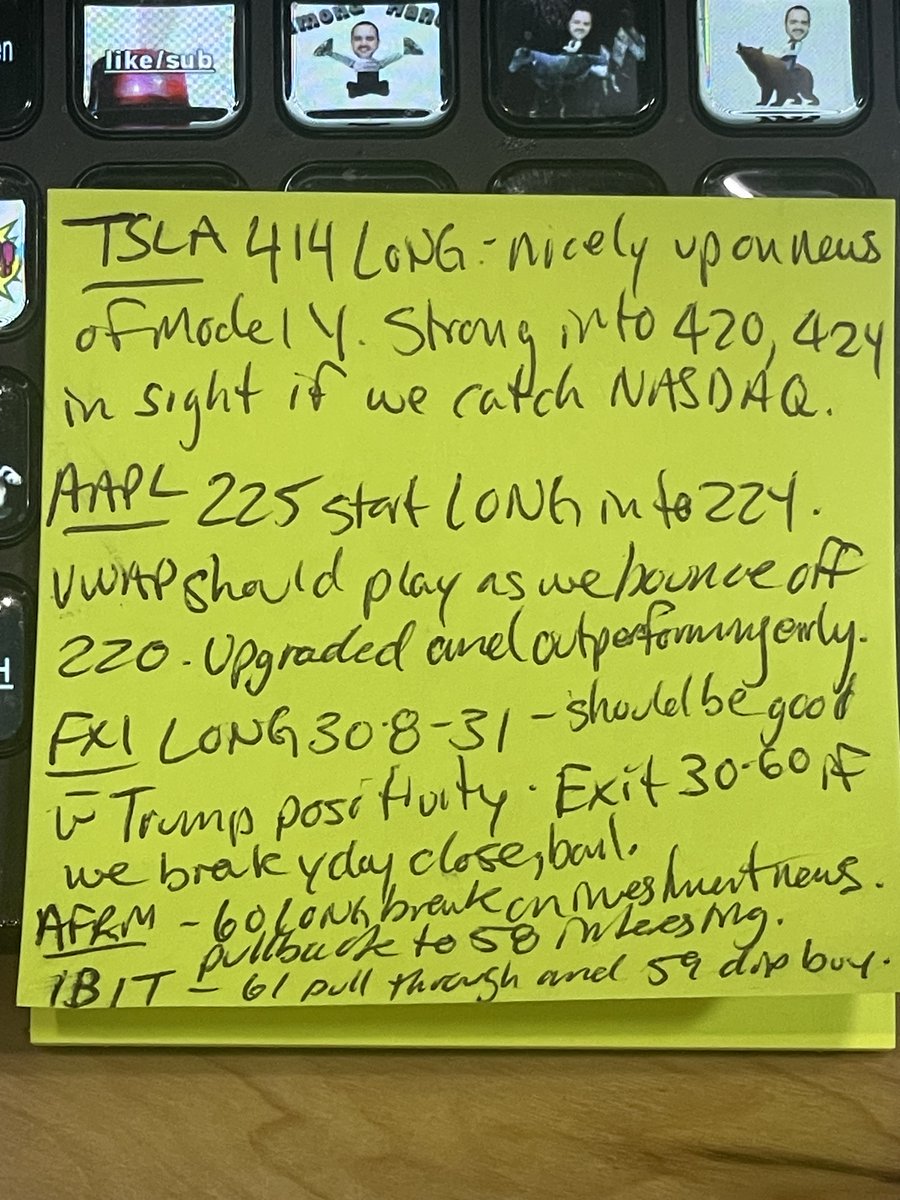 en
like/sub
TSLA 414 LONG - nicely up on news
of Model Y. Strong into 420, 424
in sight if we catch NASDAQ.
AAPL 225 start LONG into 224.
VWAP should play as we bounce off
220. Upgraded and outperforming early.
FXI LONG 30.8-31 - should be good
w Trump positivity. Exit 30.60 if
we break yday close, bail.
AFRM - 60 LONG break on investment news.
pullback to 58 interesting.
IBIT - 61 pull through and 59 dip buy.
H